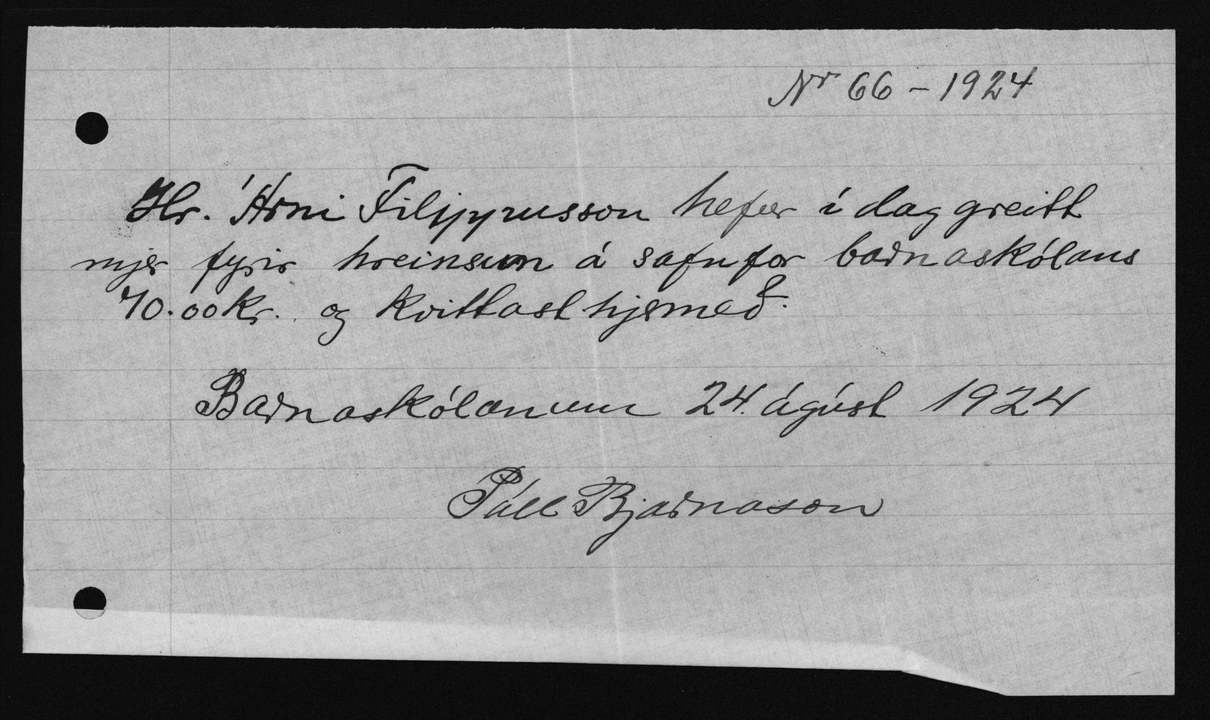 Nr 66 – 1924
Hr. Árni Filippusson hefur í dag greitt
mjer fyrir hreinsun á safnfor barnaskólans
70.00 kr. og kvittast hjermeð.
Barnaskólanum 24. ágúst 1924
Páll Bjarnason